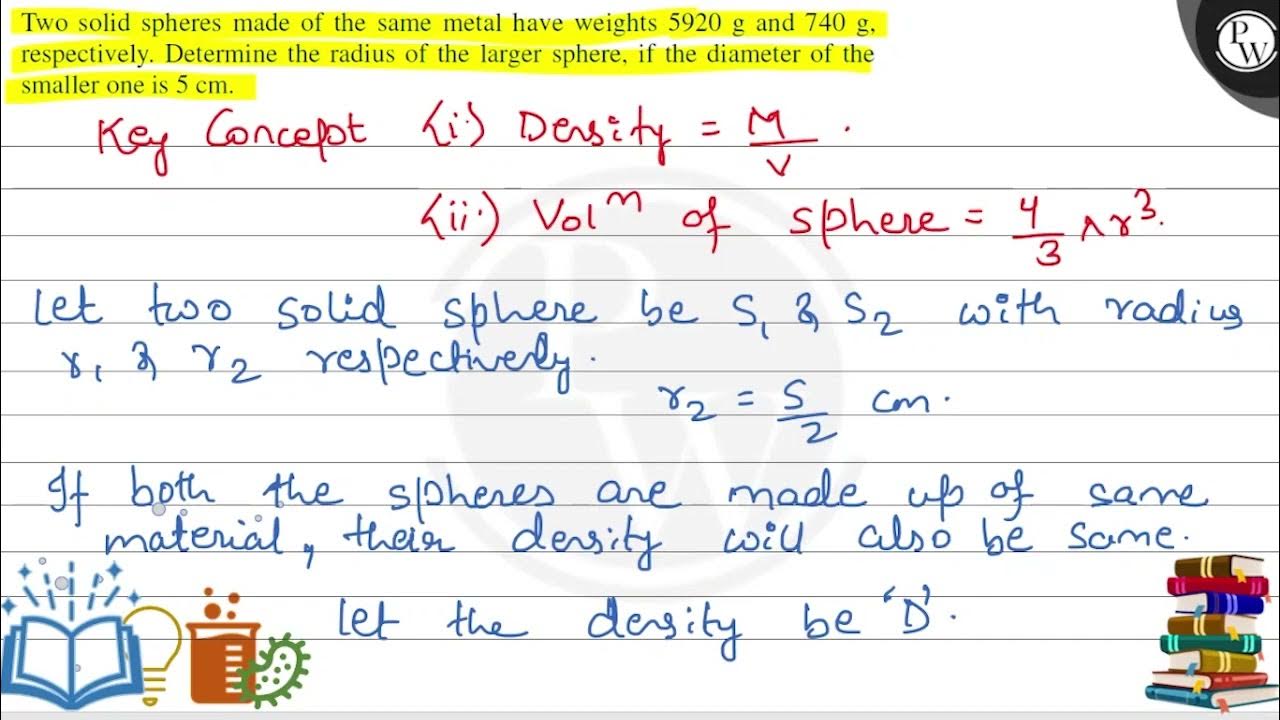 Two solid spheres made of the same metal have weights 5920 g and 740 g,
respectively. Determine the radius of the larger sphere, if the diameter of the
smaller one is 5 cm.
PW
Key Concept (i) Density = M/V.
(ii) Vol^m of sphere = 4/3 πr³.
Let two solid sphere be S₁ & S₂ with radius
r₁ & r₂ respectively.
r₂ = 5/2 cm.
If both the spheres are made up of same
material, their density will also be same.
Let the density be 'D'.